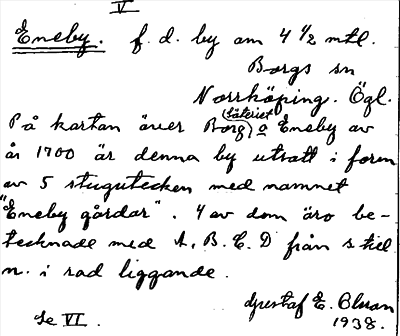 V
Eneby. f. d. by om 4 1/2 mtl.
Borgs sn
Norrköping. Ögl.
På kartan över Borg (säteriet) o Eneby av
år 1700 är denna by utsatt i form
av 5 stugutecken med namnet
"Eneby gårdar". 4 av dem äro be-
tecknade med A, B, C, D från s till
n. i rad liggande.
Gustaf E. Olsson
Se VI. 1938.